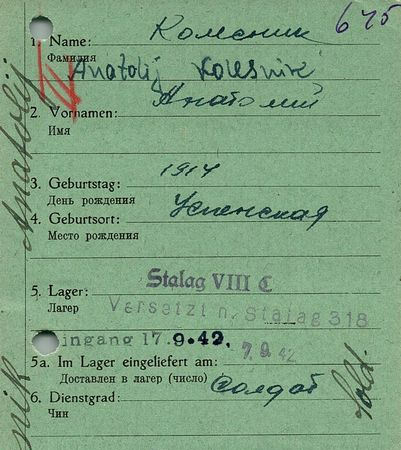 675
1. Name: Колесник
Фамилия
Anatolij Kolesnik
2. Vornamen: Анатолий
Имя
1914
3. Geburtstag:
День рождения
4. Geburtsort: Успенская
Место рождения
Stalag VIII C
5. Lager: Versetzt n. Stalag 318
Лагерь
Eingang 17.9.42. 7.9.42
5a. Im Lager eingeliefert am:
Доставлен в лагерь (число) солдат
6. Dienstgrad:
Чин
Anatolij
Sold.